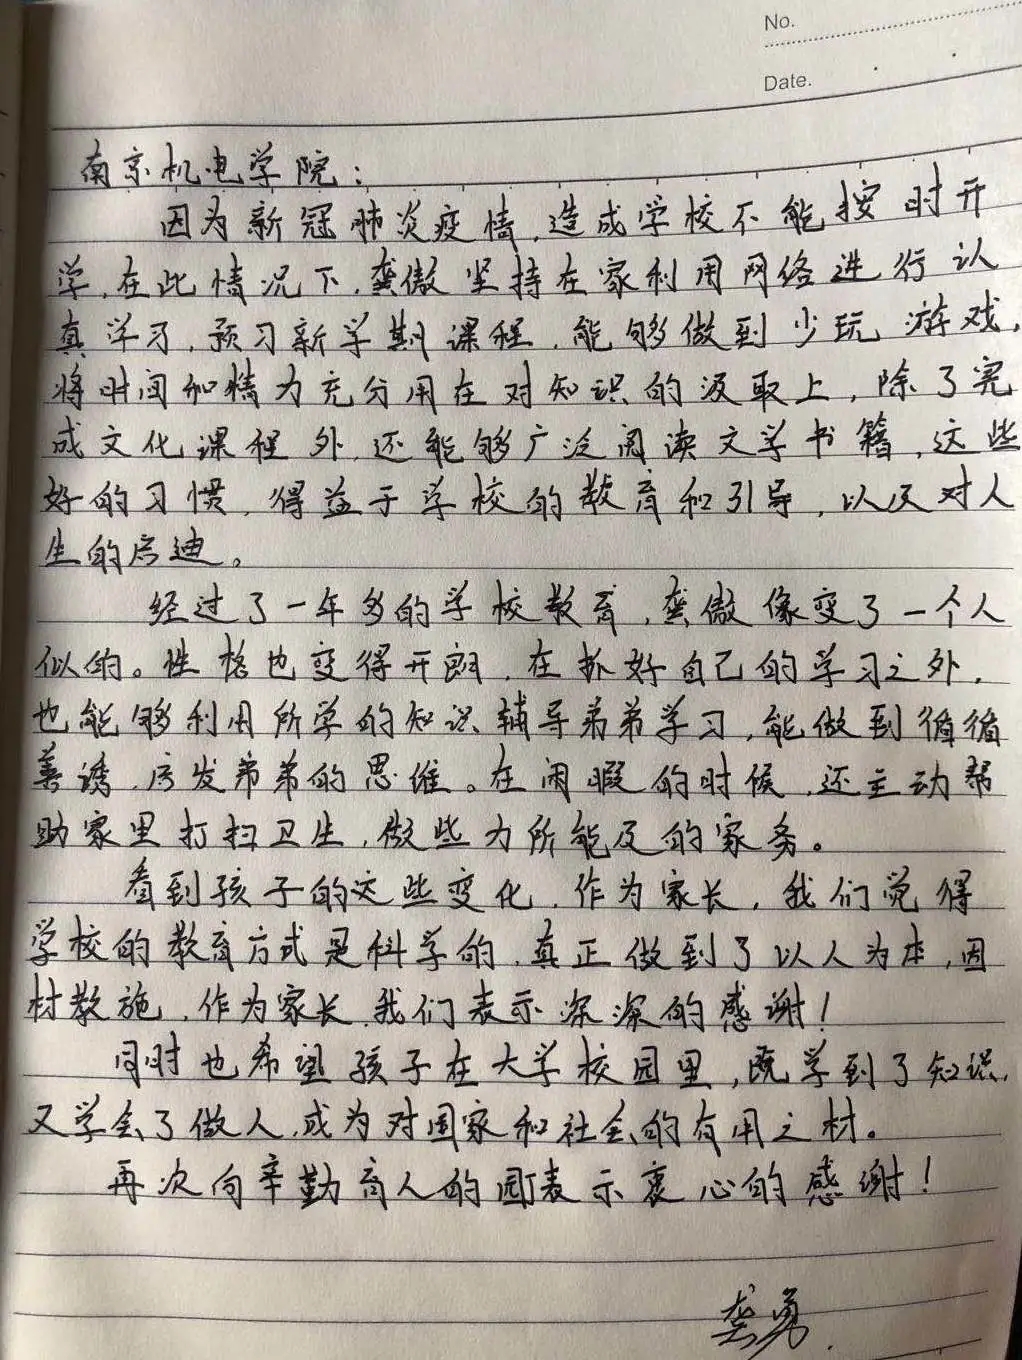 No.
Date.
南京机电学院：
因为新冠肺炎疫情，造成学校不能按时开
学，在此情况下，龚傲坚持在家利用网络进行认
真学习，预习新学期课程，能够做到少玩游戏，
将时间和精力充分用在对知识的汲取上，除了完
成文化课程外，还能够广泛阅读文学书籍，这些
好的习惯，得益于学校的教育和引导，以及对人
生的启迪。
经过了一年多的学校教育，龚傲像变了一个人
似的。性格也变得开朗，在抓好自己的学习之外，
也能够利用所学的知识辅导弟弟学习，能做到循循
善诱，启发弟弟的思维。在闲暇的时候，还主动帮
助家里打扫卫生，做些力所能及的家务。
看到孩子的这些变化，作为家长，我们觉得
学校的教育方式是科学的，真正做到了以人为本，因
材教施，作为家长，我们表示深深的感谢！
同时也希望孩子在大学校园里，既学到了知识，
又学会了做人，成为对国家和社会的有用之材。
再次向辛勤育人的园丁表示衷心的感谢！
龚勇